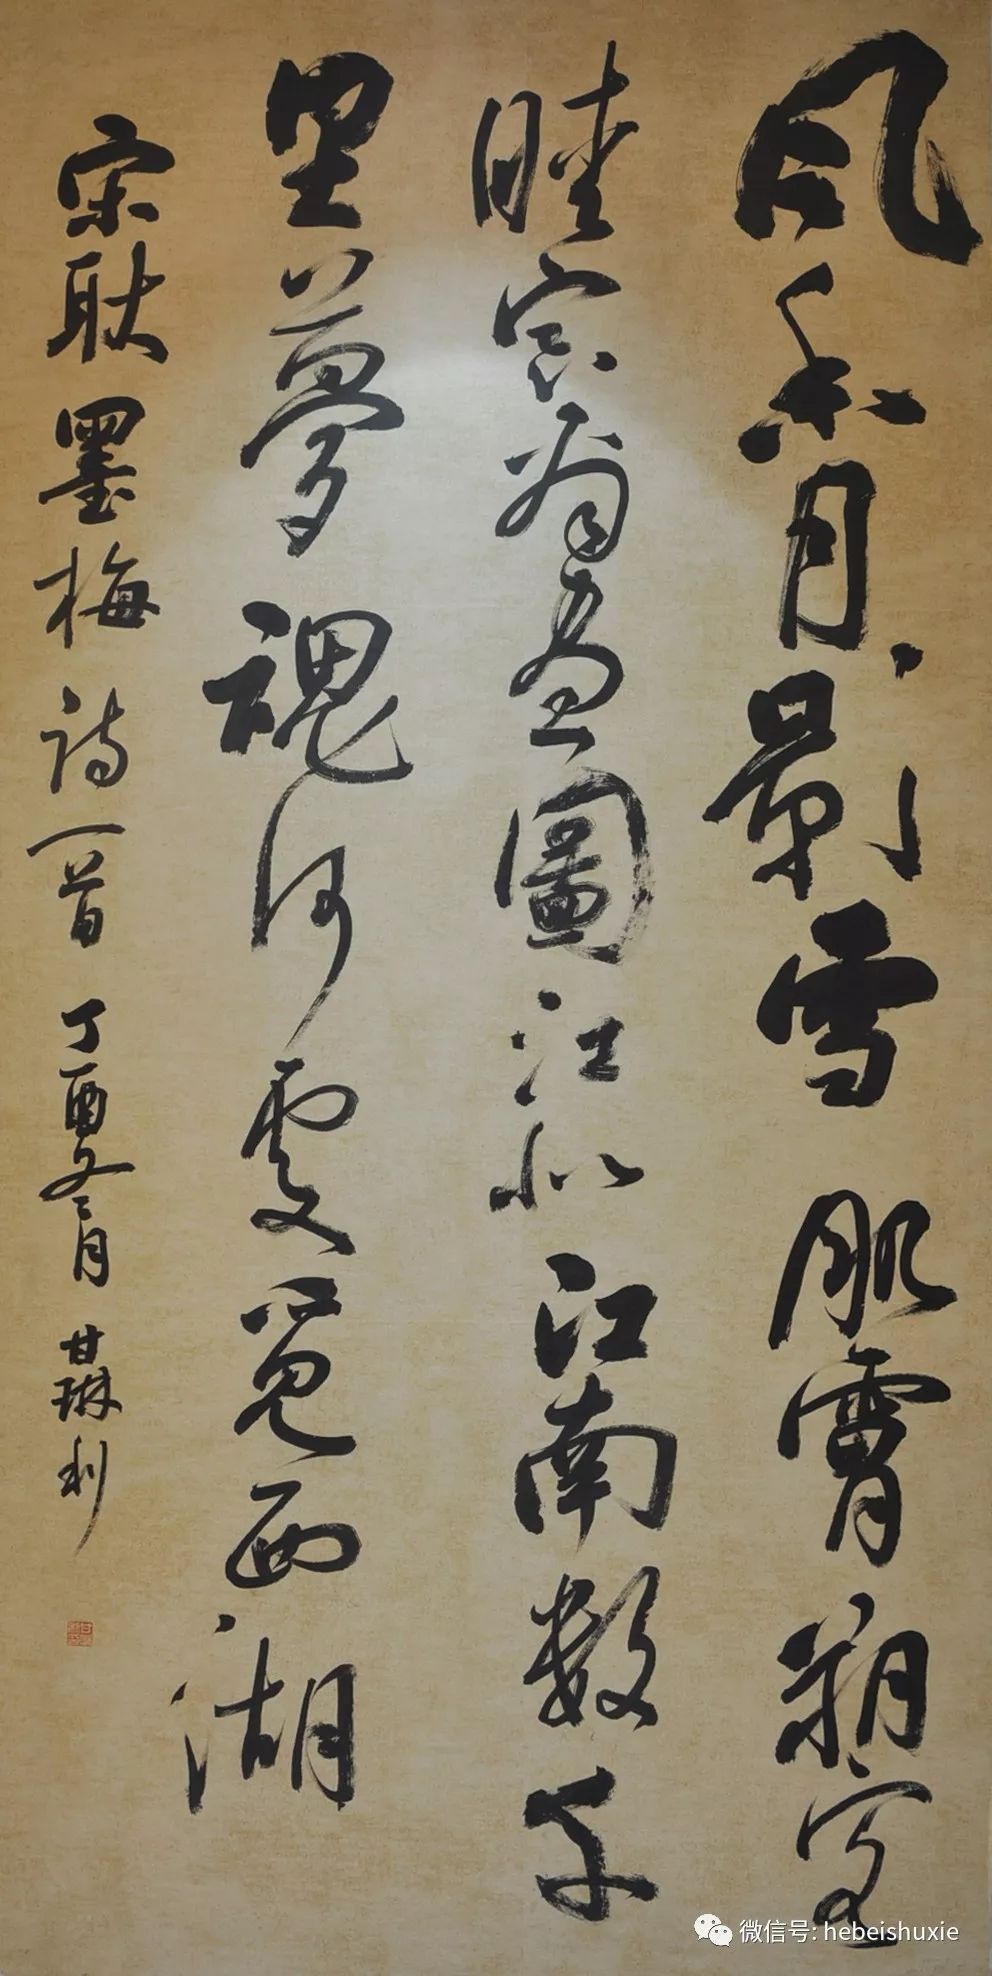 风香月影雪肌膚朔室
晴窗看畫圖江北江南數千
里夢魂何處覓西湖
宋耿墨梅诗一首 丁酉冬月 甘琳利
微信号: hebeishuxie